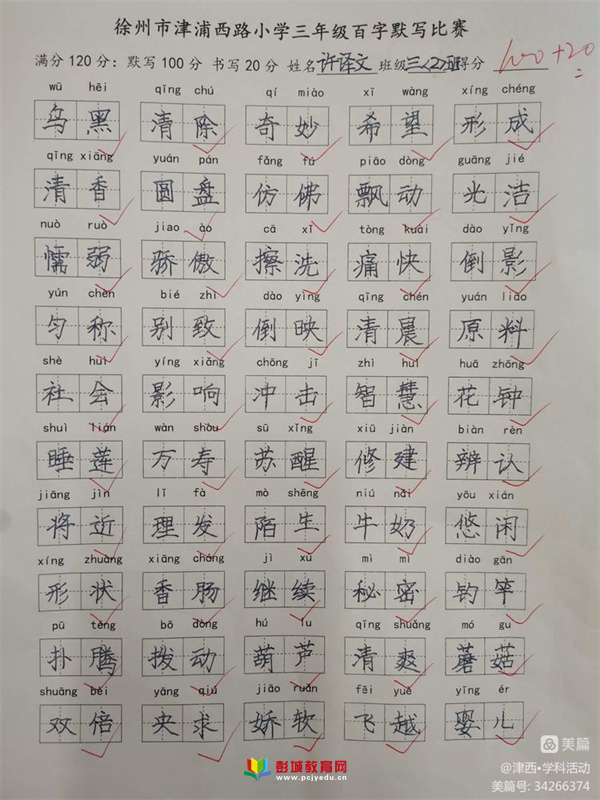 徐州市津浦西路小学三年级百字默写比赛
满分120分：默写100分 书写20分 姓名许译文班级三(2)班得分100+20
wū hēi qīng chú qí miào xī wàng xíng chéng
乌黑 清除 奇妙 希望 形成
qīng xiāng yuán pán fǎng fú piāo dòng guāng jié
清香 圆盘 仿佛 飘动 光洁
nuò ruò jiao ào cā xǐ tòng kuài dào yǐng
懦弱 骄傲 擦洗 痛快 倒影
yún chèn bié zhì dào yìng qīng chén yuán liào
匀称 别致 倒映 清晨 原料
shè huì yíng xiǎng chōng jī zhì huì huā zhōng
社会 影响 冲击 智慧 花钟
shuì lián wàn shòu sū xǐng xiū jiàn biàn rèn
睡莲 万寿 苏醒 修建 辨认
jiāng jìn lǐ fà mò shēng niú nǎi yōu xián
将近 理发 陌生 牛奶 悠闲
xíng zhuàng xiāng cháng jì xù mì mì diào gān
形状 香肠 继续 秘密 钓竿
pū téng bō dòng hú lu qīng shuǎng mó gu
扑腾 拨动 葫芦 清爽 蘑菇
shuāng bèi yāng qiú jiāo ruǎn fēi yuè yīng ér
双倍 央求 娇软 飞越 婴儿
彭城教育网
www.pcjyedu.cn
美篇
@津西•学科活动
美篇号: 34266374